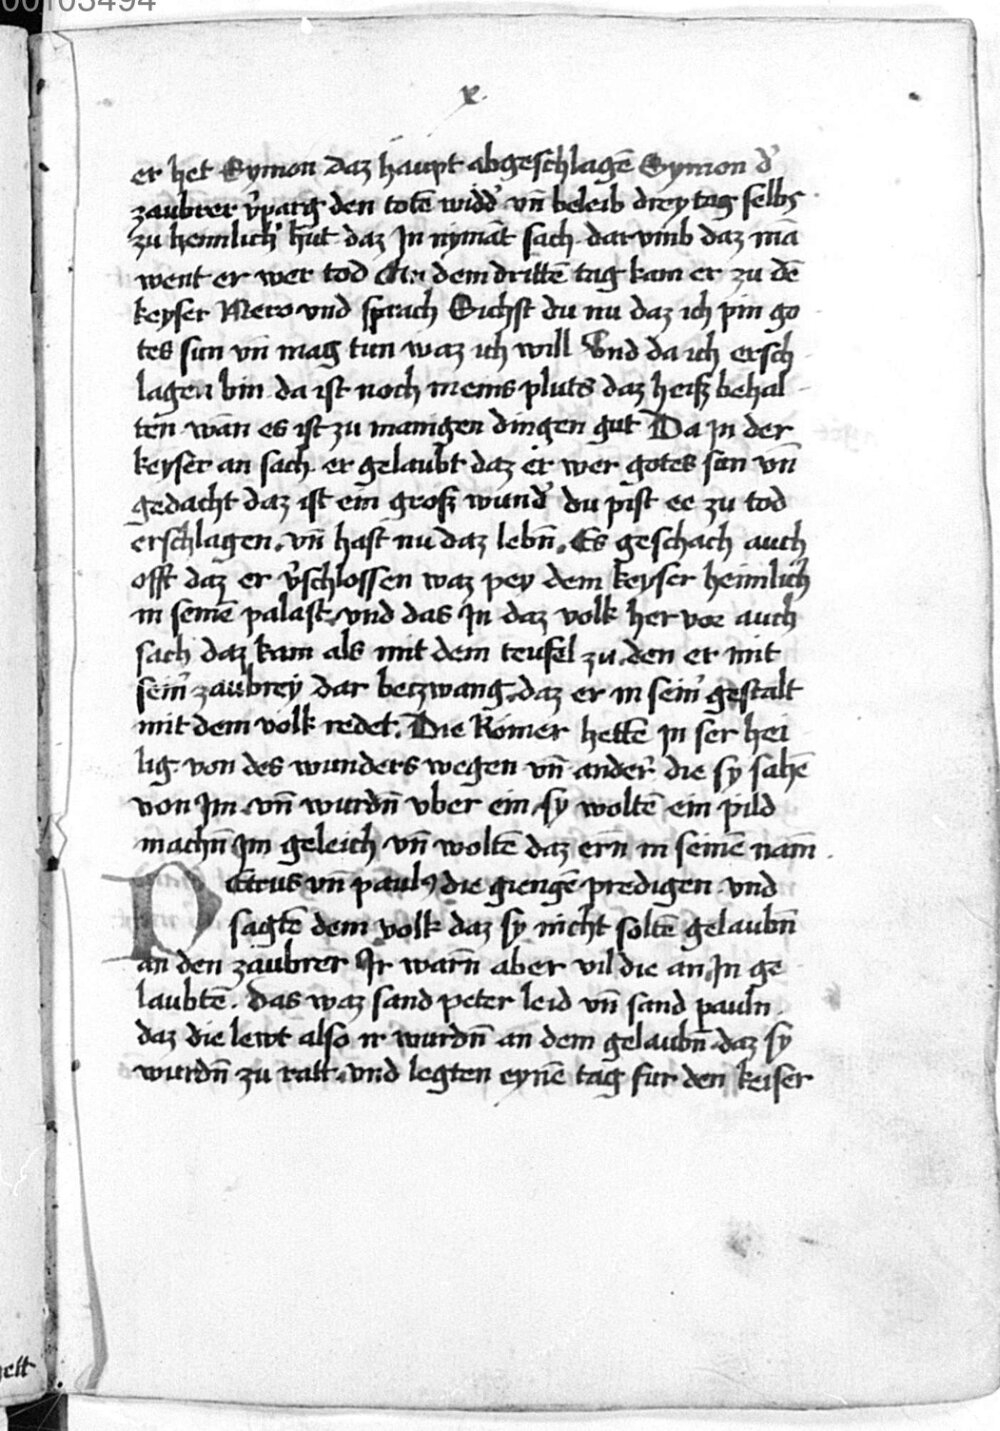 00103494
x
er het Symon daz haupt abgeschlagē Symon d'
zaubrer v̓parg den totē widd' vn̄ beleib drey tag selbs
zu heimlich' hut daz In nymāt sach dar vmb daz mā
went er wer tod An dem drittē tag kam er zu dē
keyser Nero vnd sprach Sichst du nu daz ich pin go
tes sun vn̄ mag tun waz ich will Vnd da ich ersch
lagen bin da ist noch meins pluts daz heiß behal
ten wān es ist zu manigen dingen gut Da In der
keyser an sach er gelaubt daz er wer gotes sun vn̄
gedacht daz ist ein groß wund' du pist ee zu tod
erschlagen. vn̄ hast nu daz lebn̄. Es geschach auch
offt daz er v̓schlossen waz pey dem keyser heimlich
in seinē palast. vnd das In daz volk her vor auch
sach daz kam als mit dem teufel zu. den er mit
sein' zaubrey dar betzwang. daz er in sein' gestalt
mit dem volk redet. Die Romer hettē In ser hei
lig von des wunders wegen vn̄ ander' die sy sahē
von Im vn̄ wurdn̄ vber ein sy woltē ein pild
machn̄ Im geleich vn̄ woltē daz ern̄ in seinē nam̄
PEtrus vn̄ paulꝰ die giengē predigen vnd
sagtē dem volk daz sy nicht soltē gelaubn̄
an den zaubrer Ir warn̄ aber vil die an In ge
laubtē. das waz sand peter leid vn̄ sand pauln
daz die lewt also ir wurdn̄ an dem gelaubn̄ daz sy
wurdn̄ zu ratt. vnd legten eynē tag fur den keiser